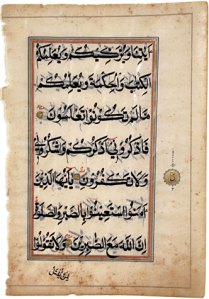 ايتنا ويزكيكم ويعلمكم
الكتب والحكمة ويعلمكم
ما لم تكونوا تعلمون
فاذكروني اذكركم واشكروا لي
ولا تكفرون يايها الذين
امنوا استعينوا بالصبر والصلوة
ان الله مع الصبرين ولا تقولوا